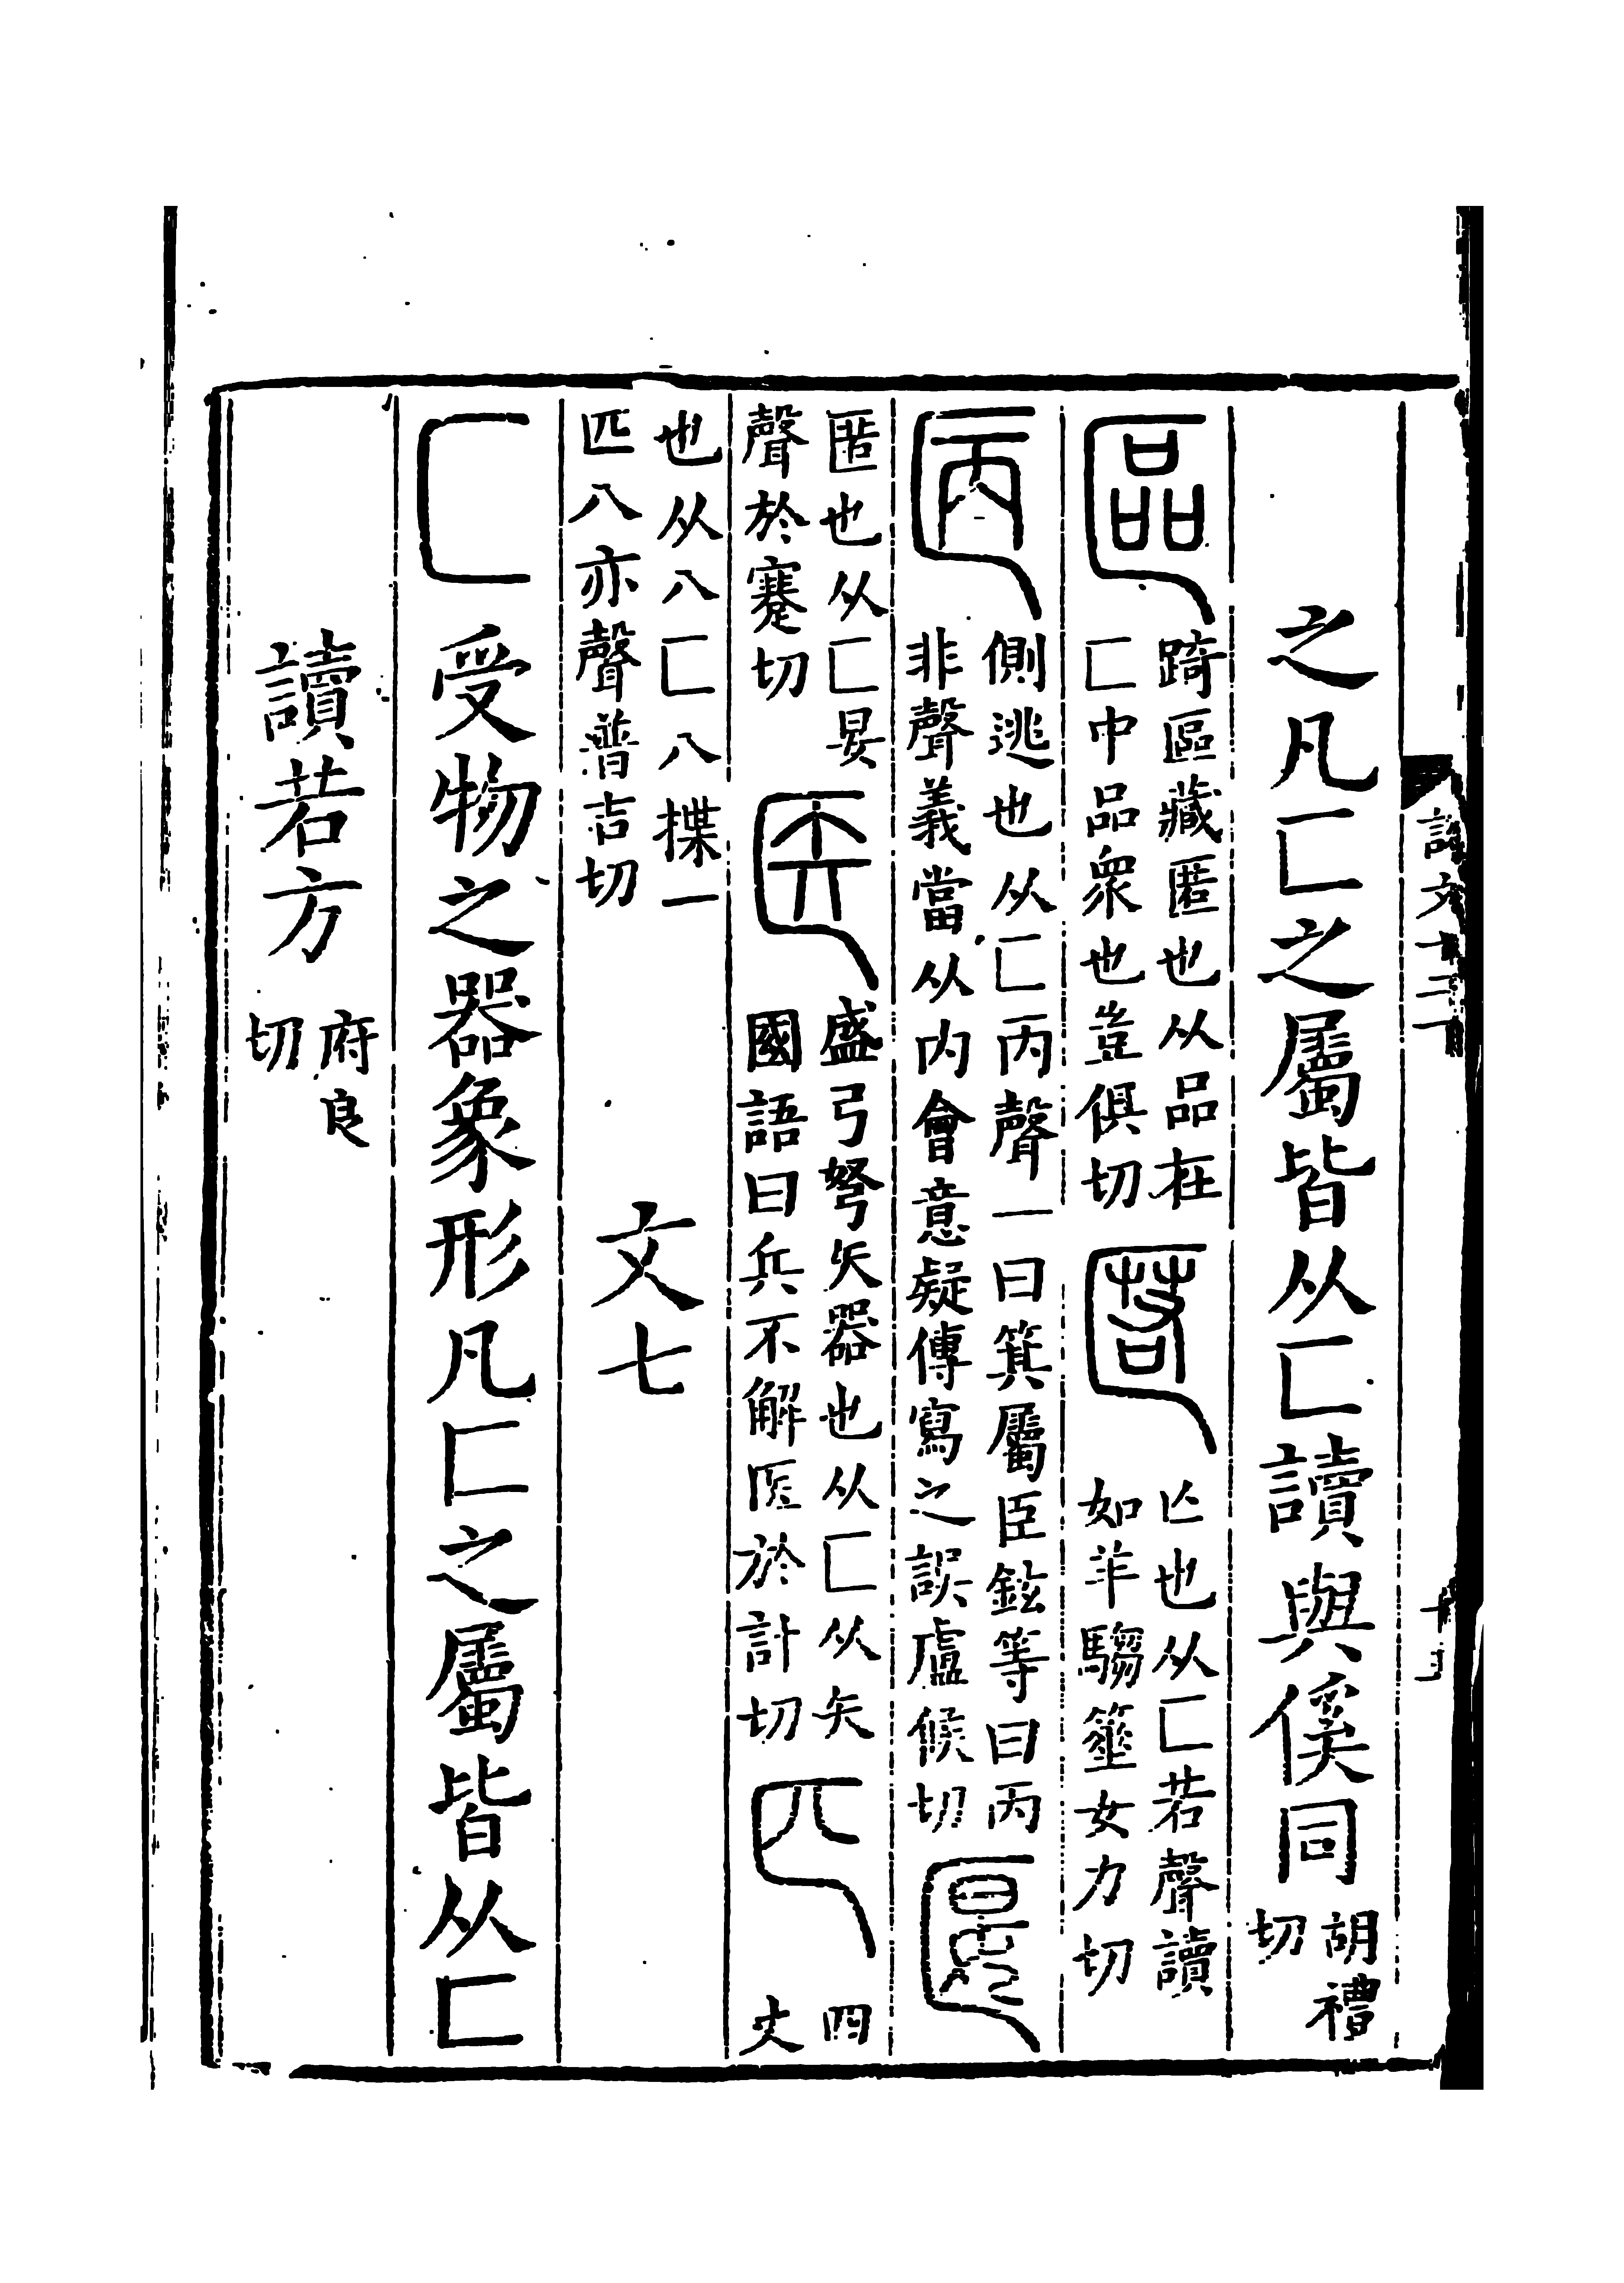 說文十二下
之凡匸之屬皆从匸讀與傒同胡禮切
區踦區藏匿也从品在匸中品衆也豈俱切
匿亾也从匸若聲讀如羊騶箠女力切
㔷側逃也从匸丙聲一曰箕屬臣鉉等曰丙非聲義當从內會意疑傳寫之誤盧候切
匽匿也从匸妟聲於蹇切
医盛弓弩矢器也从匸从矢國語曰兵不解医於計切
匹四丈也从八匸八揲一匹八亦聲普吉切
文七
匚受物之器象形凡匚之屬皆从匚
讀若方府良切